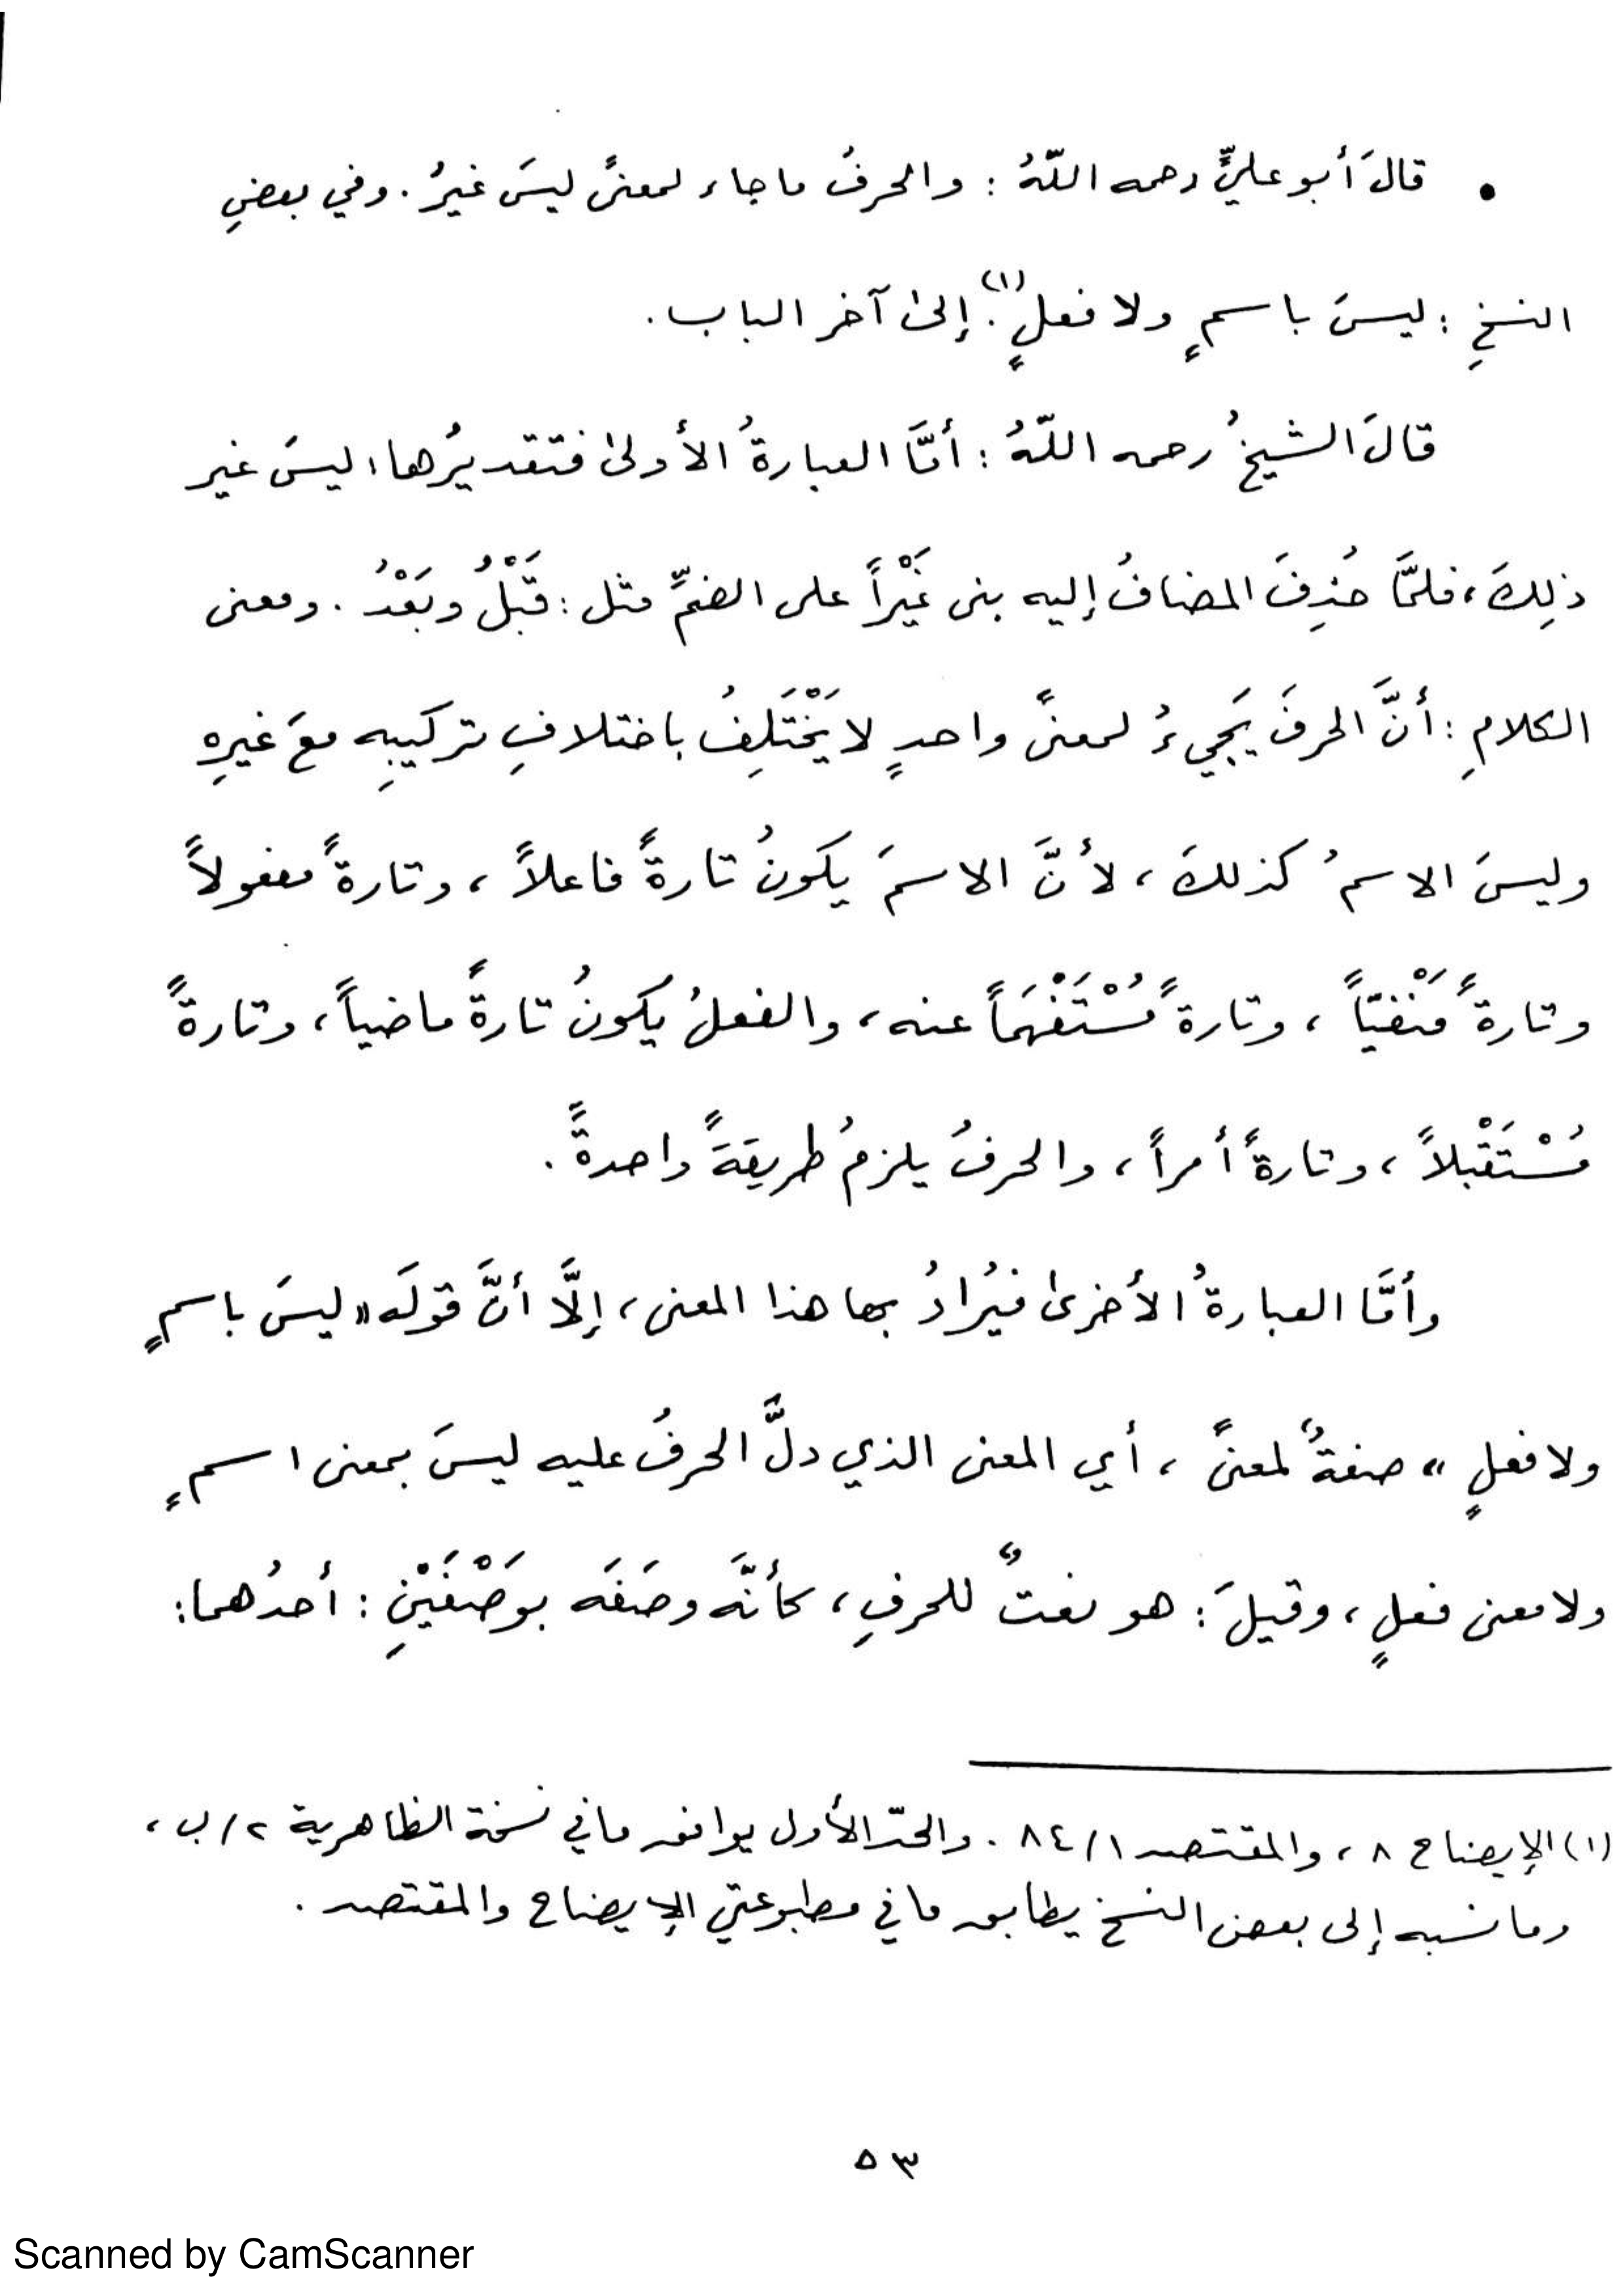 • قالَ أبو عليٍّ رحمه اللّهُ : والحرفُ ما جاء لمعنىً ليسَ غيرُ . وفي بعضِ
النسخِ : ليسَ باسمٍ ولا فعلٍ(١). إلىٰ آخر الباب .
قالَ الشيخُ رحمه اللّهُ : أمَّا العبارةُ الأولىٰ فتقديرُها : ليسَ غير
ذلِكَ ، فلمَّا حُذِفَ المضافُ إليه بنى غَيْراً على الضمِّ مثل : قَبْلُ وبَعْدُ . ومعنى
الكلامِ : أنَّ الحرفَ يَجيءُ لمعنىً واحدٍ لا يَخْتَلِفُ باختلافِ تركيبِه معَ غيرِهِ
وليسَ الاسمُ كذلكَ ، لأنَّ الاسمَ يكونُ تارةً فاعلاً ، وتارةً مفعولاً
وتارةً مَنْفيّاً ، وتارةً مُسْتَفْهَماً عنه ، والفعلُ يكونُ تارةً ماضياً ، وتارةً
مُسْتَقْبلاً ، وتارةً أمراً ، والحرفُ يلزمُ طريقةً واحدةً .
وأمَّا العبارةُ الأخرىٰ فيُرادُ بها هذا المعنى ، إلَّا أنَّ قولَه « ليسَ باسمٍ
ولا فعلٍ » صفةٌ لمعنىً ، أي المعنى الذي دلَّ الحرفُ عليه ليسَ بمعنى اسمٍ
ولا معنى فعلٍ ، وقيلَ : هو نعتٌ للحرفِ ، كأنَّه وصَفَه بوَصْفَيْنِ : أحدُهما :
(١) الإيضاح ٨ ، والمقتصد ١/ ٨٤ . والحدّ الأول يوافق ما في نسخة الظاهرية ٢/ب ،
وما نسبه إلى بعض النسخ يطابق ما في مطبوعتي الإيضاح والمقتصد .
٥٣
Scanned by CamScanner